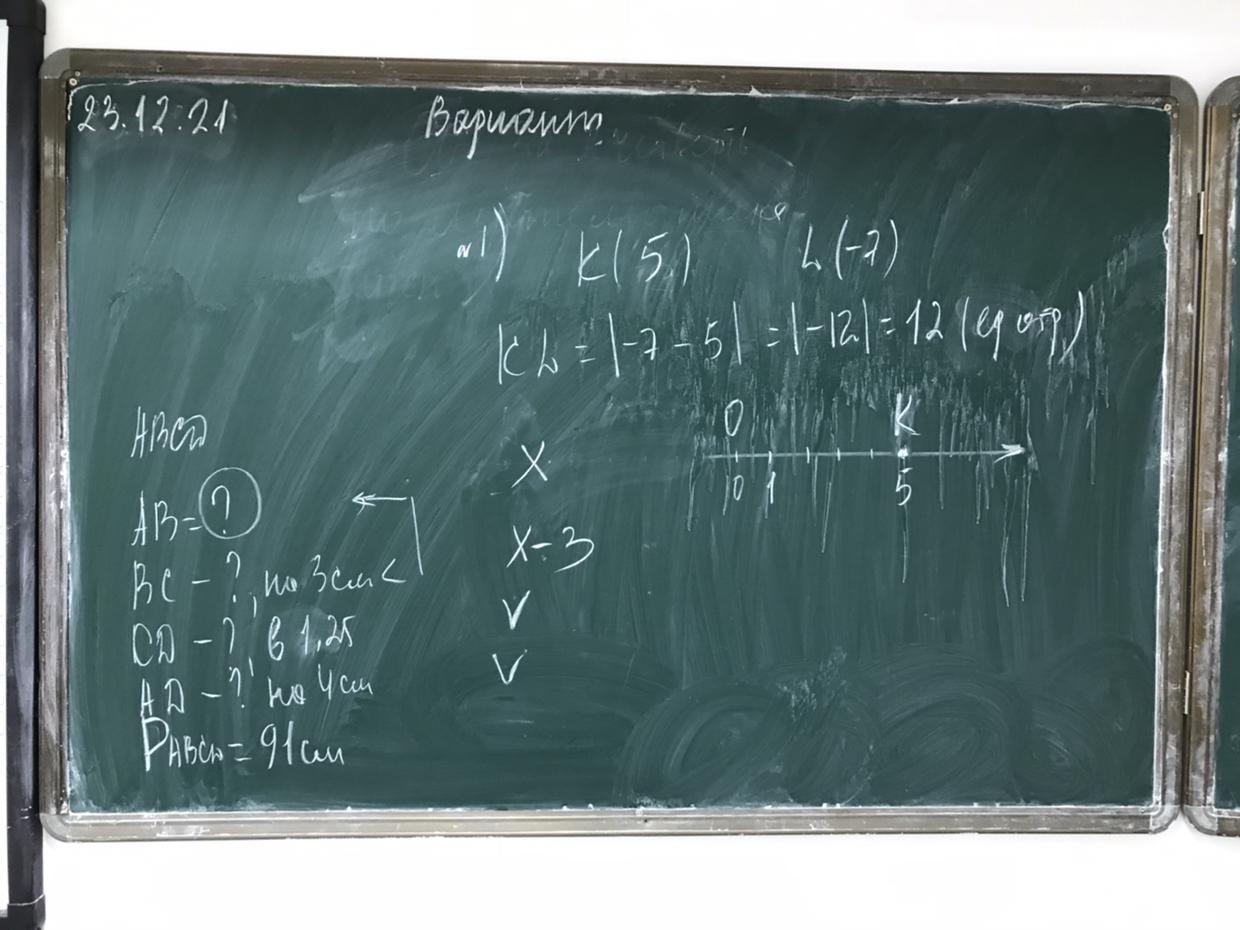 23.12.21
Вариант
№1) K(5) L(-7)
KL = |-7 - 5| = |-12| = 12 (ед отр)
O K
0 1 5
ABCD
AB = ?
BC - ?, на 3 см <
CD - ?, в 1,25
AD - ?, на 4 см
P ABCD = 91 см
X
X-3
V
V